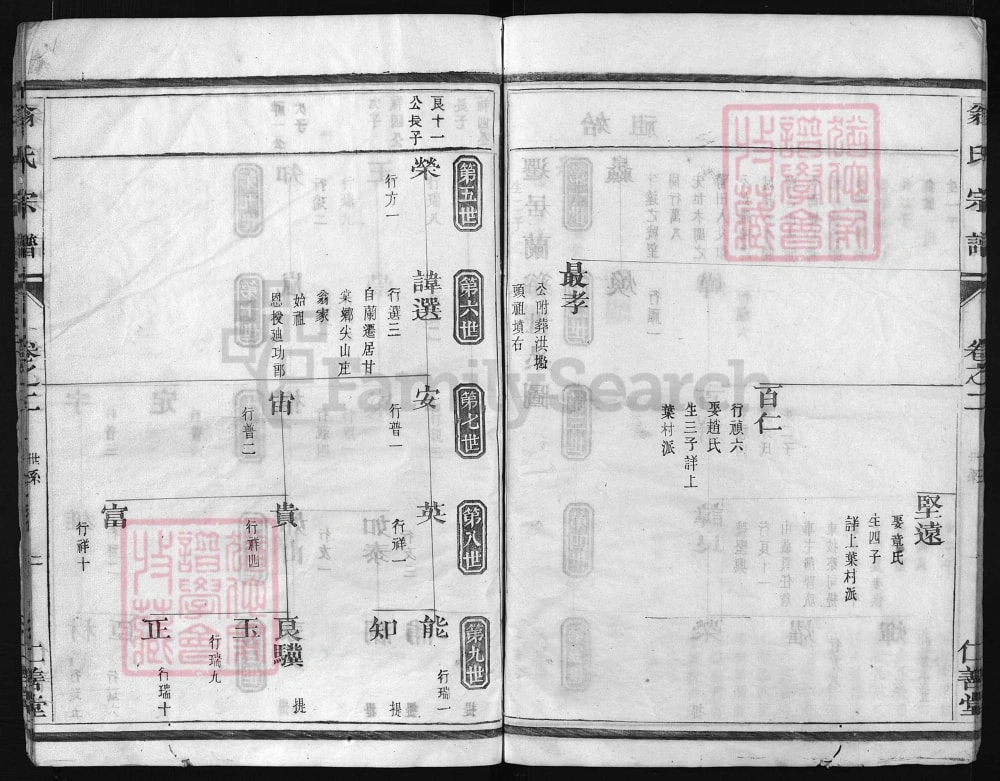 翁氏宗譜
卷之二
仁善堂
堅遠
娶章氏
生四子
詳上葉村派
百仁
行頑六
娶趙氏
生三子詳上
葉村派
最孝
公附葬洪坳
頭祖墳右
第五世
第六世
第七世
第八世
第九世
艮十一
公長子
榮
行方一
諱選
行選三
自蘭遷居甘
棠鄉尖山庄
翁家
始祖
恩授廸功郎
安
行普一
宙
行普二
英
行祥一
貴
行祥四
富
行祥十
能
行瑞一
知
提
良驥
提
玉
行瑞九
正
行瑞十
翁氏宗譜
卷之二
世系
二
仁善堂
FamilySearch